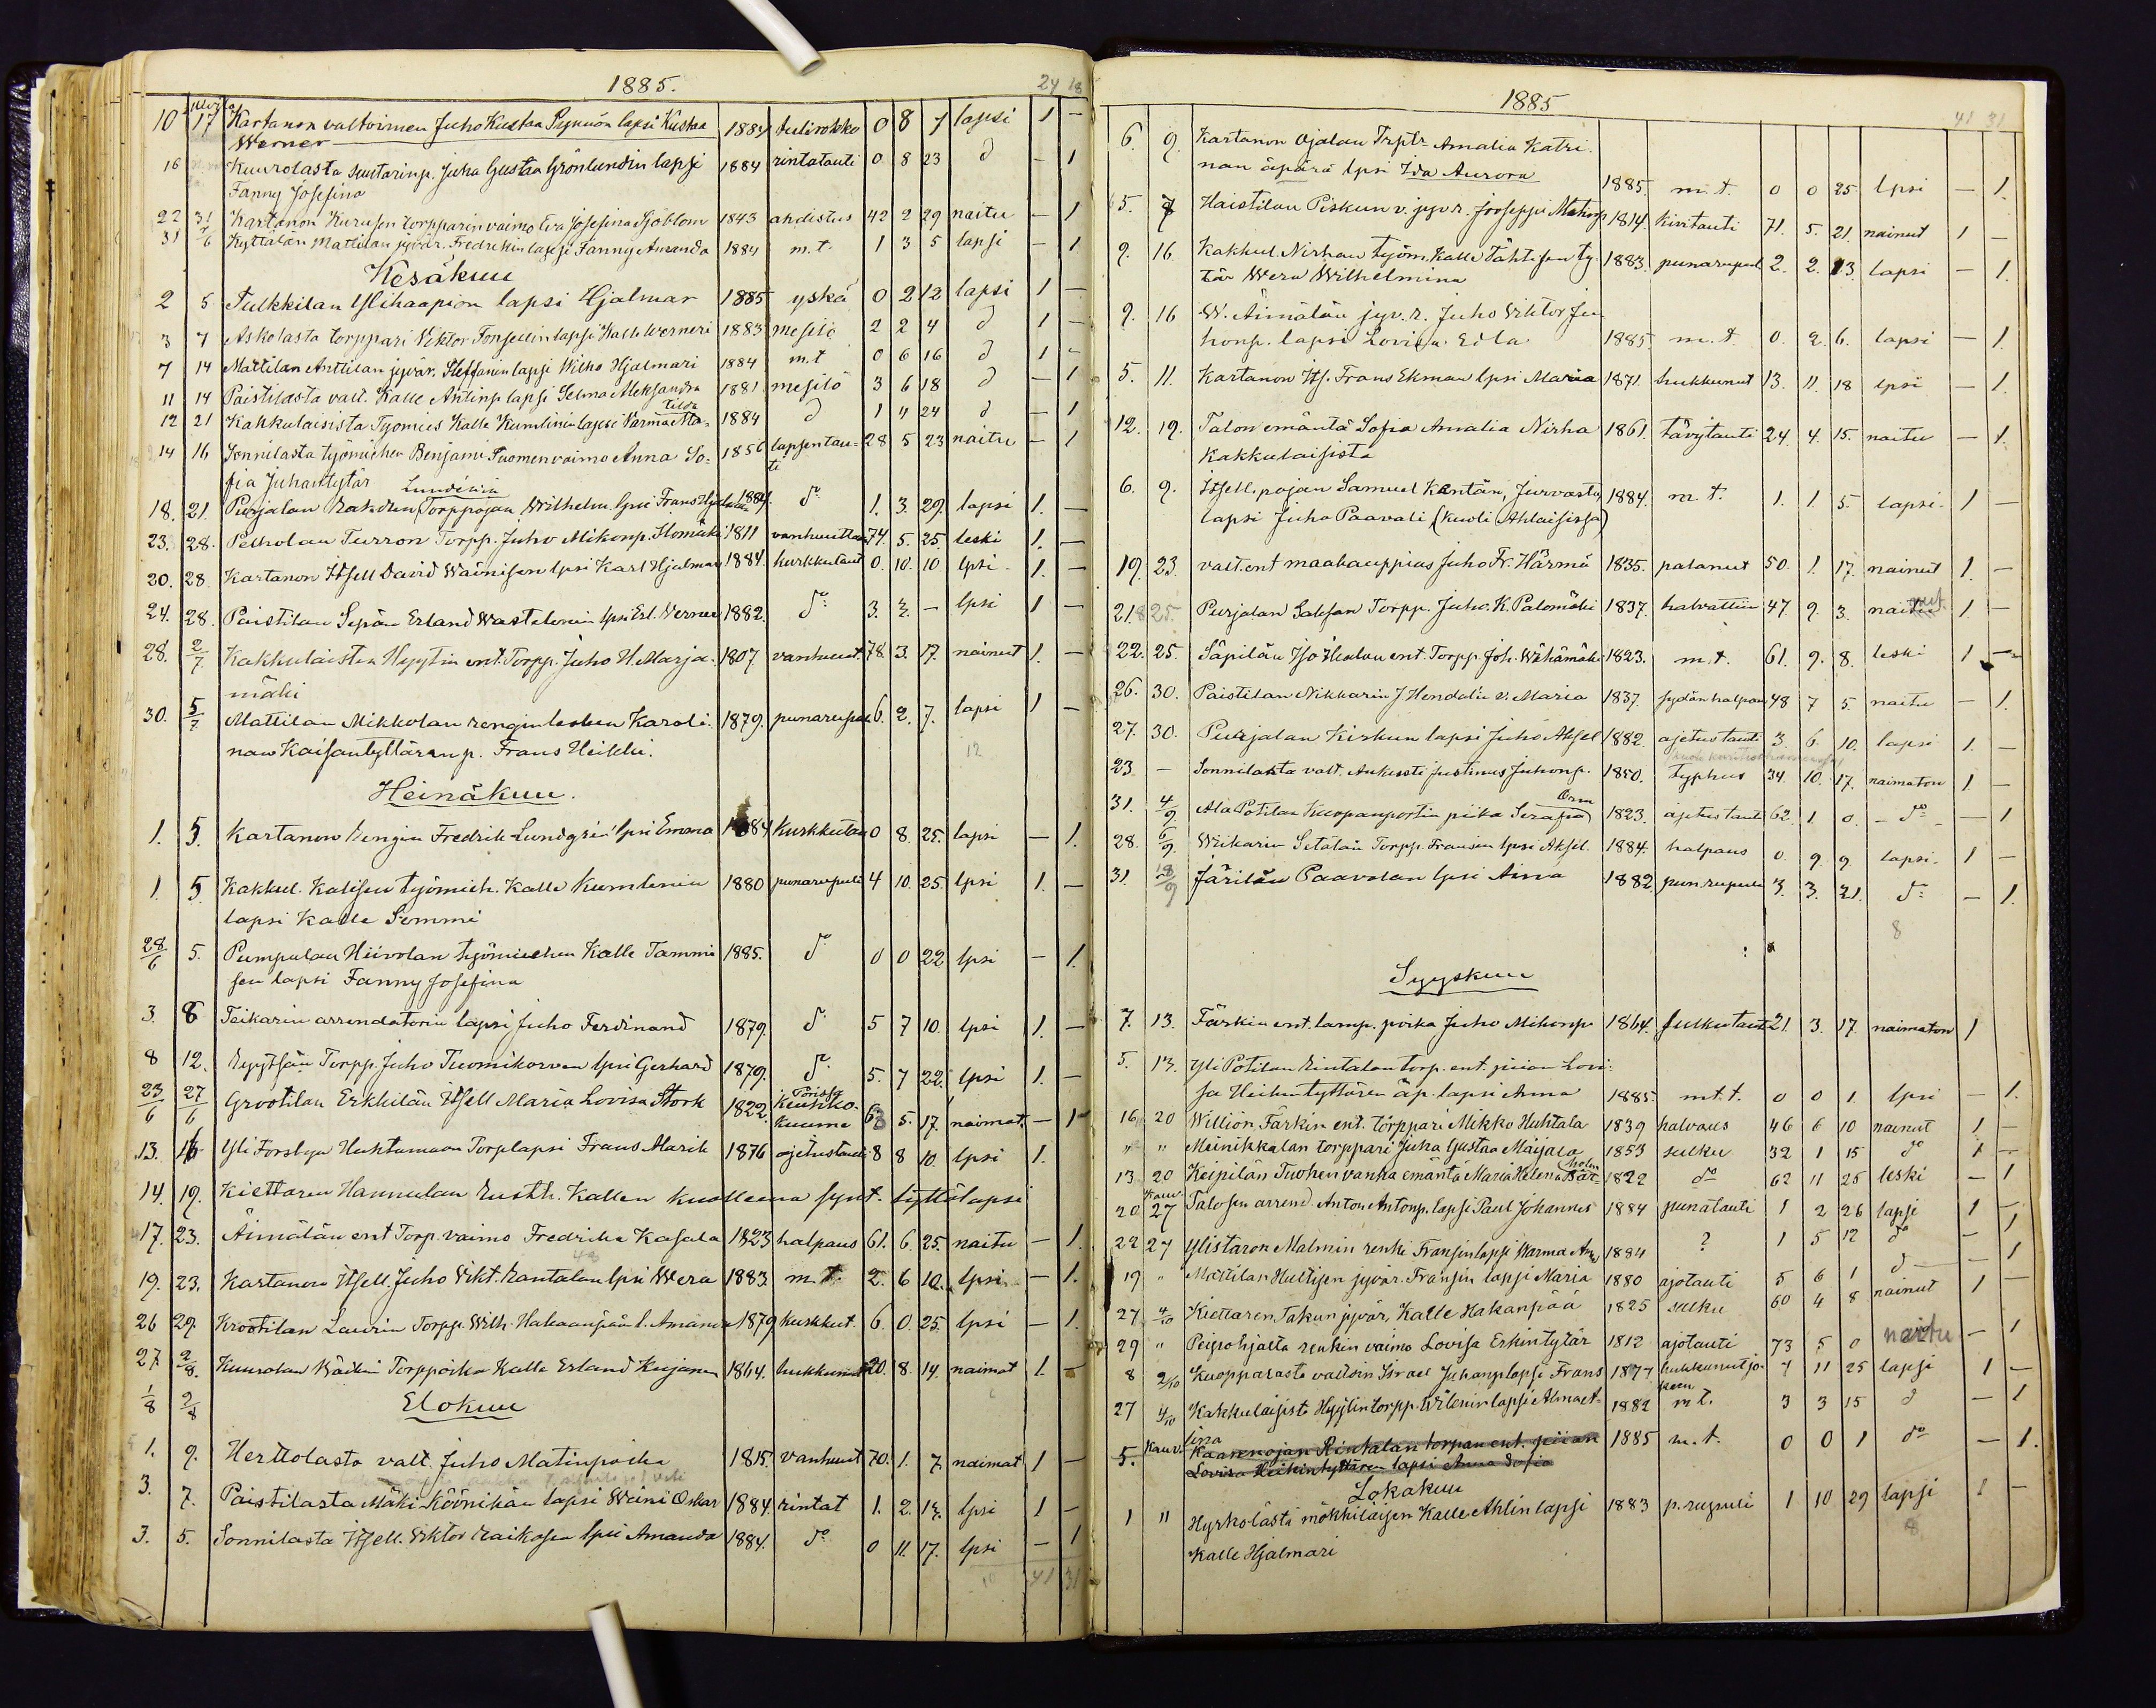 1885.
24 18
10 17 Kartanon valtoimen Juho Kustaa Pynnön lapsi Kustaa 1884 tulirokko 0 8 7 lapsi 1 -
Werner
16 Kuurolasta suutarinp. Juha Gustaa Grönlundin lapsi 1884 rintatauti 0 8 23 d - 1
Fanny Josefina
22 31 Kartanon torpparin vaimo Eva Josefina Sjöblom 1843 ahdistus 42 2 29 naitu - 1
31 Kyttälän Mattilan jyvär. Fredrikin lapsi Fanny Amanda 1884 m.t. 1 3 5 lapsi - 1
Kesäkuu
2 5 Tulkkilan Ylihaapion lapsi Hjalmar 1885 yskä 0 2 12 lapsi 1 -
3 7 Askolasta torppari Viktor Fonsellin lapsi Kalle Werneri 1883 mesilö 2 2 4 d 1 -
7 14 Mattilan Anttilan jyvär. Steffanin lapsi Wilho Hjalmari 1884 m.t 0 6 16 d 1 -
11 14 Paistilasta valt. Kalle Antinp lapsi Selma Aleksandra 1881 mesilö 3 6 18 d - 1
12 21 Kakkulaisista Työmies Kalle Kumlinin lapsi Varma Ma= tilda 1884 d 1 4 24 d - 1
14 16 Sonnilasta työmiehen Benjami Suomen vaimo Anna So= 1856 lapsentau= 28 5 23 naitu - 1
fia Juhantytär ti
18. 21. Purjalan Torppojan Wilhelm Lundénin lpsi Frans Hjalmar 1884. do 1. 3. 29. lapsi 1. -
23. 28. Pelholan Turron Torpp. Juho Mikonp. Homäki 1811 vanhuutta 74. 5. 25. leski 1. -
20. 28. Kartanon Itsell David Wäinisen lpsi Karl Hjalmar 1884. kurkkutaut 0. 10. 10 lpsi - 1. -
24. 28. Paistilan Sepän Erland Wasteleniin lpsi Erl. Verner 1882. do 3. 3. - lpsi 1 -
28. 2/7 Kakkulaisten Hyytin ent. Torpp. Juho H. Marja- 1807 vanhuut 78 3. 17. nainut 1. -
mäki
30. 5/7 Mattilan Mikkolan rengin lesken Karoli- 1879. punarupul 6. 2. 7. lapsi 1 -
nan Kaisantyttären p. Frans Heikki. 12
Heinäkuu.
1. 5. Kartanon Rengin Fredrik Lundgrén lpsi Emma 1884 Kurkkutau 0 8. 25. lapsi - 1.
1. 5. Kakkul. Kalisen työmieh. Kalle Kumlenin 1880 punarupuli 4 10. 25. lpsi 1. -
lapsi Kalle Semmi
28/6 5. Pumpulan Hiivolan työmiehen Kalle Tammi 1885. do 0 0 22 lpsi - 1.
sen lapsi Fanny Josefina
3. 8 Teikarin arrendatorin lapsi Juho Ferdinand 1879. do 5 7 10. lpsi 1. -
8 12. Ryytsän Torpp. Juho Tuomikorven lpsi Gerhard 1879. do 5. 7 22. lpsi 1. -
23/6 27/6 Grootilan Erkkilän Itsell Maria Lovisa Stork 1822. Keuhko- kuume 63 5. 17. naimat. - 1
13. 16 Yli Forsbyn Huhtamaan Torp lapsi Frans Marik 1876 ajetustauti 8 8 10. lpsi 1.
14. 19. Kiettaren Hannulan Rusth. Kallen kuolleena synt. tyttölapsi
17. 23. Äimälän ent Torp. vaimo Fredrika Kasala 1823 halpaus 61. 6. 25. naitu - 1.
19. 23. Kartanon Itsell. Juho Vikt. Rantalan lpsi Wera 1883. m.t. 2. 6 10. lpsi - 1.
26 29. Krootilan Laurin Torpp. Wilh. Hakaanpään l. Amanda 1879 kurkkut. 6. 0 25. lpsi - 1.
27. 2/8. Kuurolan Torppoika Kalle Erland Kujanen 1864. hukkunut 20. 8. 14. naimat 1. -
1/8 2/8 Elokuu
1. 9. Herttolasta valt. Juho Matinpoika 1815. vanhuut 70. 1. 7. naimat 1 -
3. 7. Paistilasta Mäki-Köönikän lapsi Wäinö Oskar 1884. rintat 1. 2. 14. lpsi 1 -
3. 5. Sonnilasta Itsell. Viktor Raikosen lpsi Amanda 1884. do 0 11. 17. lpsi - 1
10 41 31
1885
41 31
6. 9. Kartanon Ojalan Trptr Amalia Katri-
nan äpärä lpsi Ida Aurora 1885 m.t. 0 0 25 lpsi - 1.
5. 7 Haistilan Piskun v. jyv.r. Jooseppi Matinp. 1814. kivitauti 71. 5. 21. nainut 1 -
9. 16. Kakkul. Nirhan työm. Kalle Tähtisen ty- 1883. punarupul 2. 2. 13. lapsi - 1.
tär Wera Wilhelmina
9. 16 W. Äimälän jyv. r. Juho Viktor Ju
honp. lapsi Lovisa Edla 1885. m.t. 0. 2. 6. lapsi - 1.
5. 11. Kartanon Its. Frans Ekman lpsi Maria 1871. hukkunut 13. 11. 18 lpsi - 1.
12. 19. Talon emäntä Sofia Amalia Nirha 1861. Tävytauti 24. 4. 15. naitu - 1.
Kakkulaisista
6. 9. Itsell. pojan Samuel Kantän, Jurvasta 1884. m.t. 1. 1. 5. lapsi. 1 -
lapsi Juho Paavali (kuoli Ahlaisissa)
19. 23. valt. ent maakauppias Juho Fr. Härmä 1835. palanut 50. 1. 17. nainut 1. -
21. 25 Purjalan Saksan Torpp. Juho. K. Palomäki 1837. halvattiin 47. 9. 3. nainut 1 -
22. 25. Säpilän Iso Ent. Torpp. Joh. Wähämäki 1823. m.t. 61. 9. 8. leski 1 -
26. 30. Paistilan Nikkarin J Hendalin v. Maria 1837. sydänhalpau 48 7 5. naitu - 1.
27. 30. Purjalan Kiskun lapsi Juho Aksel 1882. ajetustauti 3. 6. 10. lapsi 1. -
23 - Sonnilasta valt. Aukusti Justinus Juhonp. 1850. typhus 34. 10. 17. naimaton 1 -
31. 4/9 Ala Potilan Kuopanportin piika Serafia Orm 1823. ajetustauti 62. 1 0. - do - - 1
28. 6/9. Wiikarin Setälän Torpp. Fransin lpsi Aksel. 1884. halpaus 0. 9. 9. lapsi. 1 -
31. 18/9 Järilän Paavolan lpsi Aina 1882. pun.rupuli 3. 3. 21. do - 1.
8
Syyskuu
7. 13. Färkin ent. lamp. poika Juho Mikonp 1864. sulkutauti 21. 3. 17. naimaton 1
5. 13. Yli Potilan Rintalan torp. ent. piian Lovi-
sa Heikintyttären äp. lapsi Anna 1885. mt.t. 0 0 1. lpsi - 1.
16 20 Willion Färkin ent. torppari Mikko Huhtala 1839 halvaus 46 6 10 nainut 1 -
" " Meinikkalan torppari Juha Gustaa Maijala 1853 sulku 32 1 15 do 1 -
13 20 Keipilän Tuohen vanha emäntä Maria Helena Bär= holm 1822 do 62 11 25 leski - 1
20 Kauv. 27 Talosen arrend. Anton Antonp. lapsi Paul Johannes 1884 punatauti 1 2 26 lapsi 1 -
22 27 Ylistaron Malmin renki Fransin lapsi Warma 1884 ? 1 5 12 do - 1
19 " Mattilan Hultisen jyvär. Fransin lapsi Maria 1880 ajotauti 5 6 1 d - 1
27 4/10 Kiettaren Takun jyvär, Kalle Hakanpää 1825 sulku 60 4 8 nainut 1 -
29 " Peipohjalta renkin vaimo Lovisa Erkintytär 1812 ajotauti 73 5 0 naitu - 1
8 2/10 Kuopparasta valtoin Israel Juhanp lapsi Frans 1877 hukkunut jo= 7 11 25 lapsi 1 -
keen
27 4/10 Kakkulaisista Hyytin torpp. Wilenin lapsi Alma A- 1882 m.t. 3 3 15 d - 1
lina
5. Kauv. Kaarenojan Rintalan torpan ent. piian 1885 m.t. 0 0 1 do - 1.
Lovisa Heikintyttären lapsi Anna Sofia
Lokakuu
1 11 Hyrkölästä mökkiläisen Kalle Ahlin lapsi 1883 p.rupuli 1 10 29 lapsi 1 -
Kalle Hjalmari